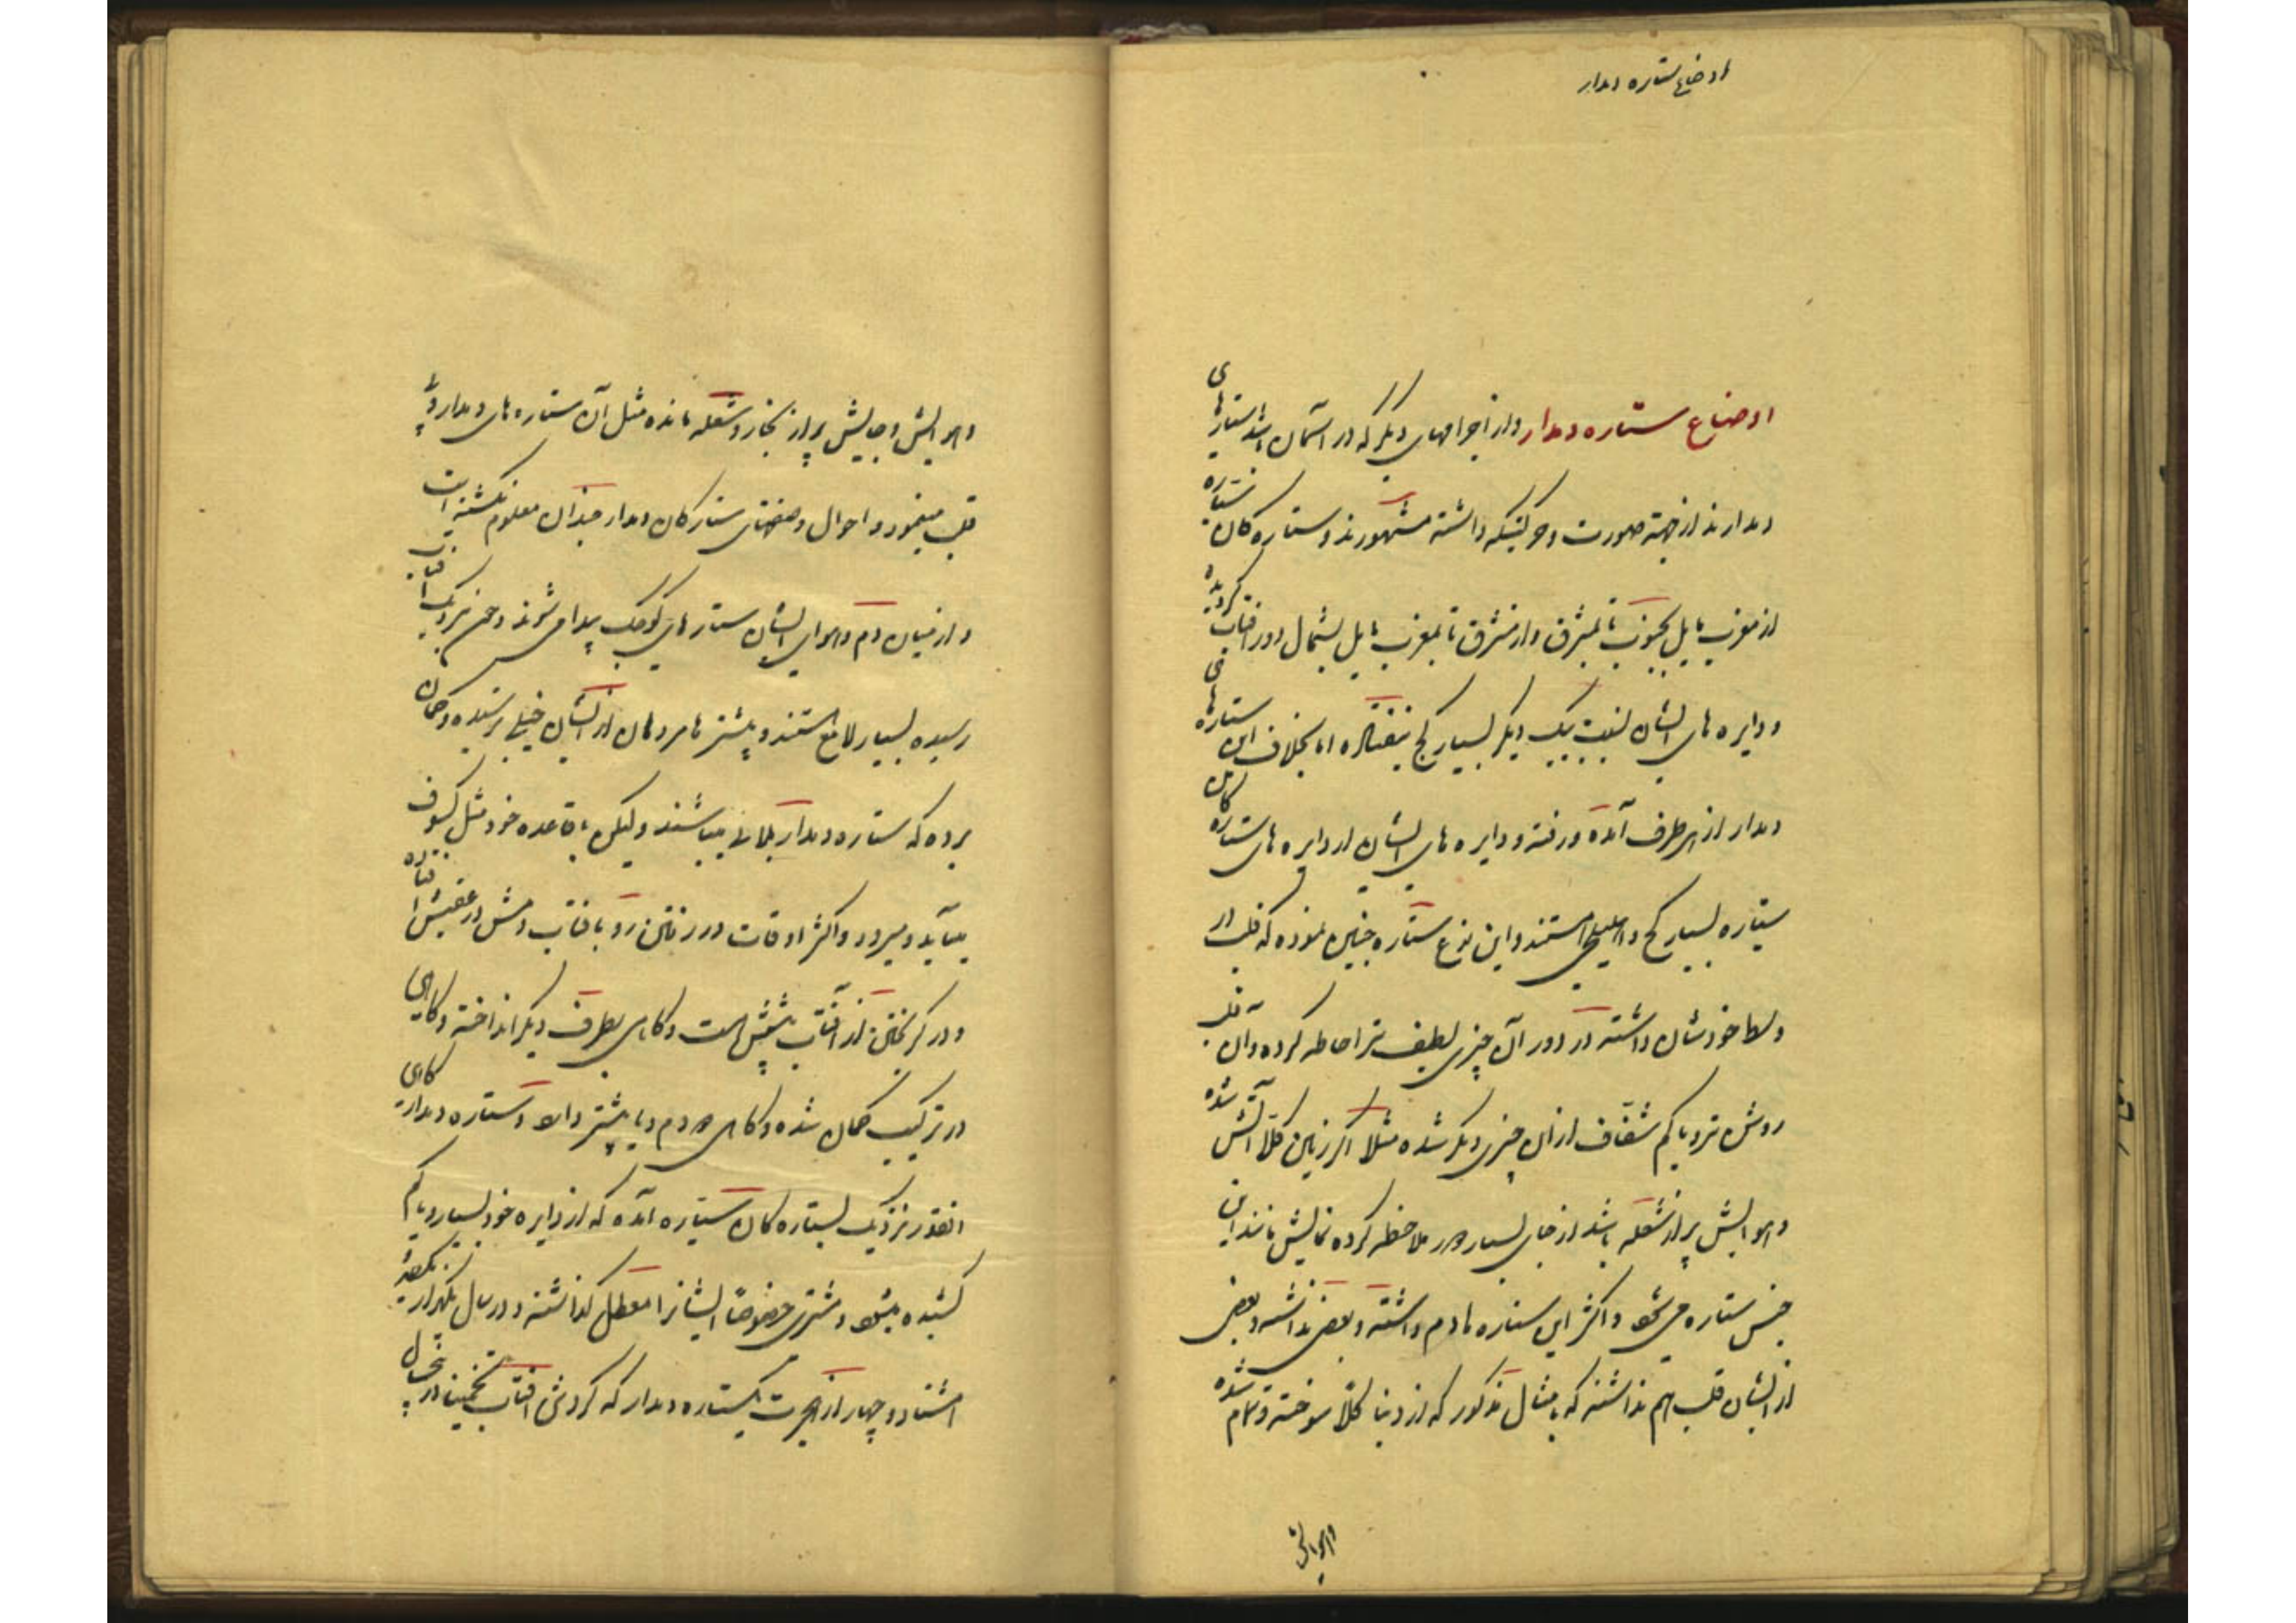 اوضاع ستاره دمدار
اوضاع ستاره دمدار واز اجرامهای دیگر که در آسمان باشد ستارهای
دمدارند از جهة صورت و حرکتیکه داشته مشهورند و ستاره کان ستاره
از مغرب مایل بجنوب تا بمشرق واز مشرق تا بمغرب مایل بشمال دور افتاب گردیده
و دایره های ایشان نسبت بیک دیگر بسیار کج نیفتاده اما بخلاف این ستاره های
دمدار از هر طرف آمده و رفته و دایره های ایشان از دایره های ستاره کان
سیاره بسیار کج و اهلیلجی هستند و این نوع ستاره چنین نموده که قلب در
وسط خودشان داشته در دور آن چیزی لطیف تر احاطه کرده و آن قلب
روشن تر و یا کم شفاف از آن چیزی دیگر شده مثلا اگر زمین کلا آتش شده
و هوایش پر از شعله باشد از جای بسیار دور ملاحظه کرده نمایش مانند این
جنس ستاره می شود و اکثر این ستاره ها دم داشته و بعضی نداشته و بعضی
از ایشان قلب هم نداشته که بامثال مذکور که از دنیا کلا سوخته و تمام شده
وهوایش
وهوایش و جایش پر از بخار و شعله مانده مثل آن ستاره های دمدار بی
قلب مینمود و احوال و صفتهای ستارکان دمدار چندان معلوم نکشته است
و از میان دم و هوای ایشان ستارهای کوچک پیدا می شوند و چون نزدیک بآفتاب
رسیده بسیار لامع هستند و پیشتر ها مردمان از ایشان خیلی ترسیده و گمان
برده که ستاره دمدار بلائی میباشند ولیکن باقاعده خود مثل کسوف
میآید و میرود و اکثر اوقات در رفتن رو بافتاب دمش در عقبش افتاده
و در کریختن از آفتاب پیشش است و کاهی بطرف دیگر انداخته و کاهی
در ترکیب کمان شده و کاهی دو دم و یا بیشتر دارد و ستاره دمدار کاهی
انقدر نزدیک بستاره کان سیاره آمده که از دایره خود بسیار و یا کم
کشیده میشود و مشتری خصوصا ایشانرا معطل کذاشته و در سال یکهزار و یکصد
هشتاد و چهار از هجرت یکستاره دمدار که کردش افتاب تخمینا در پنج سال